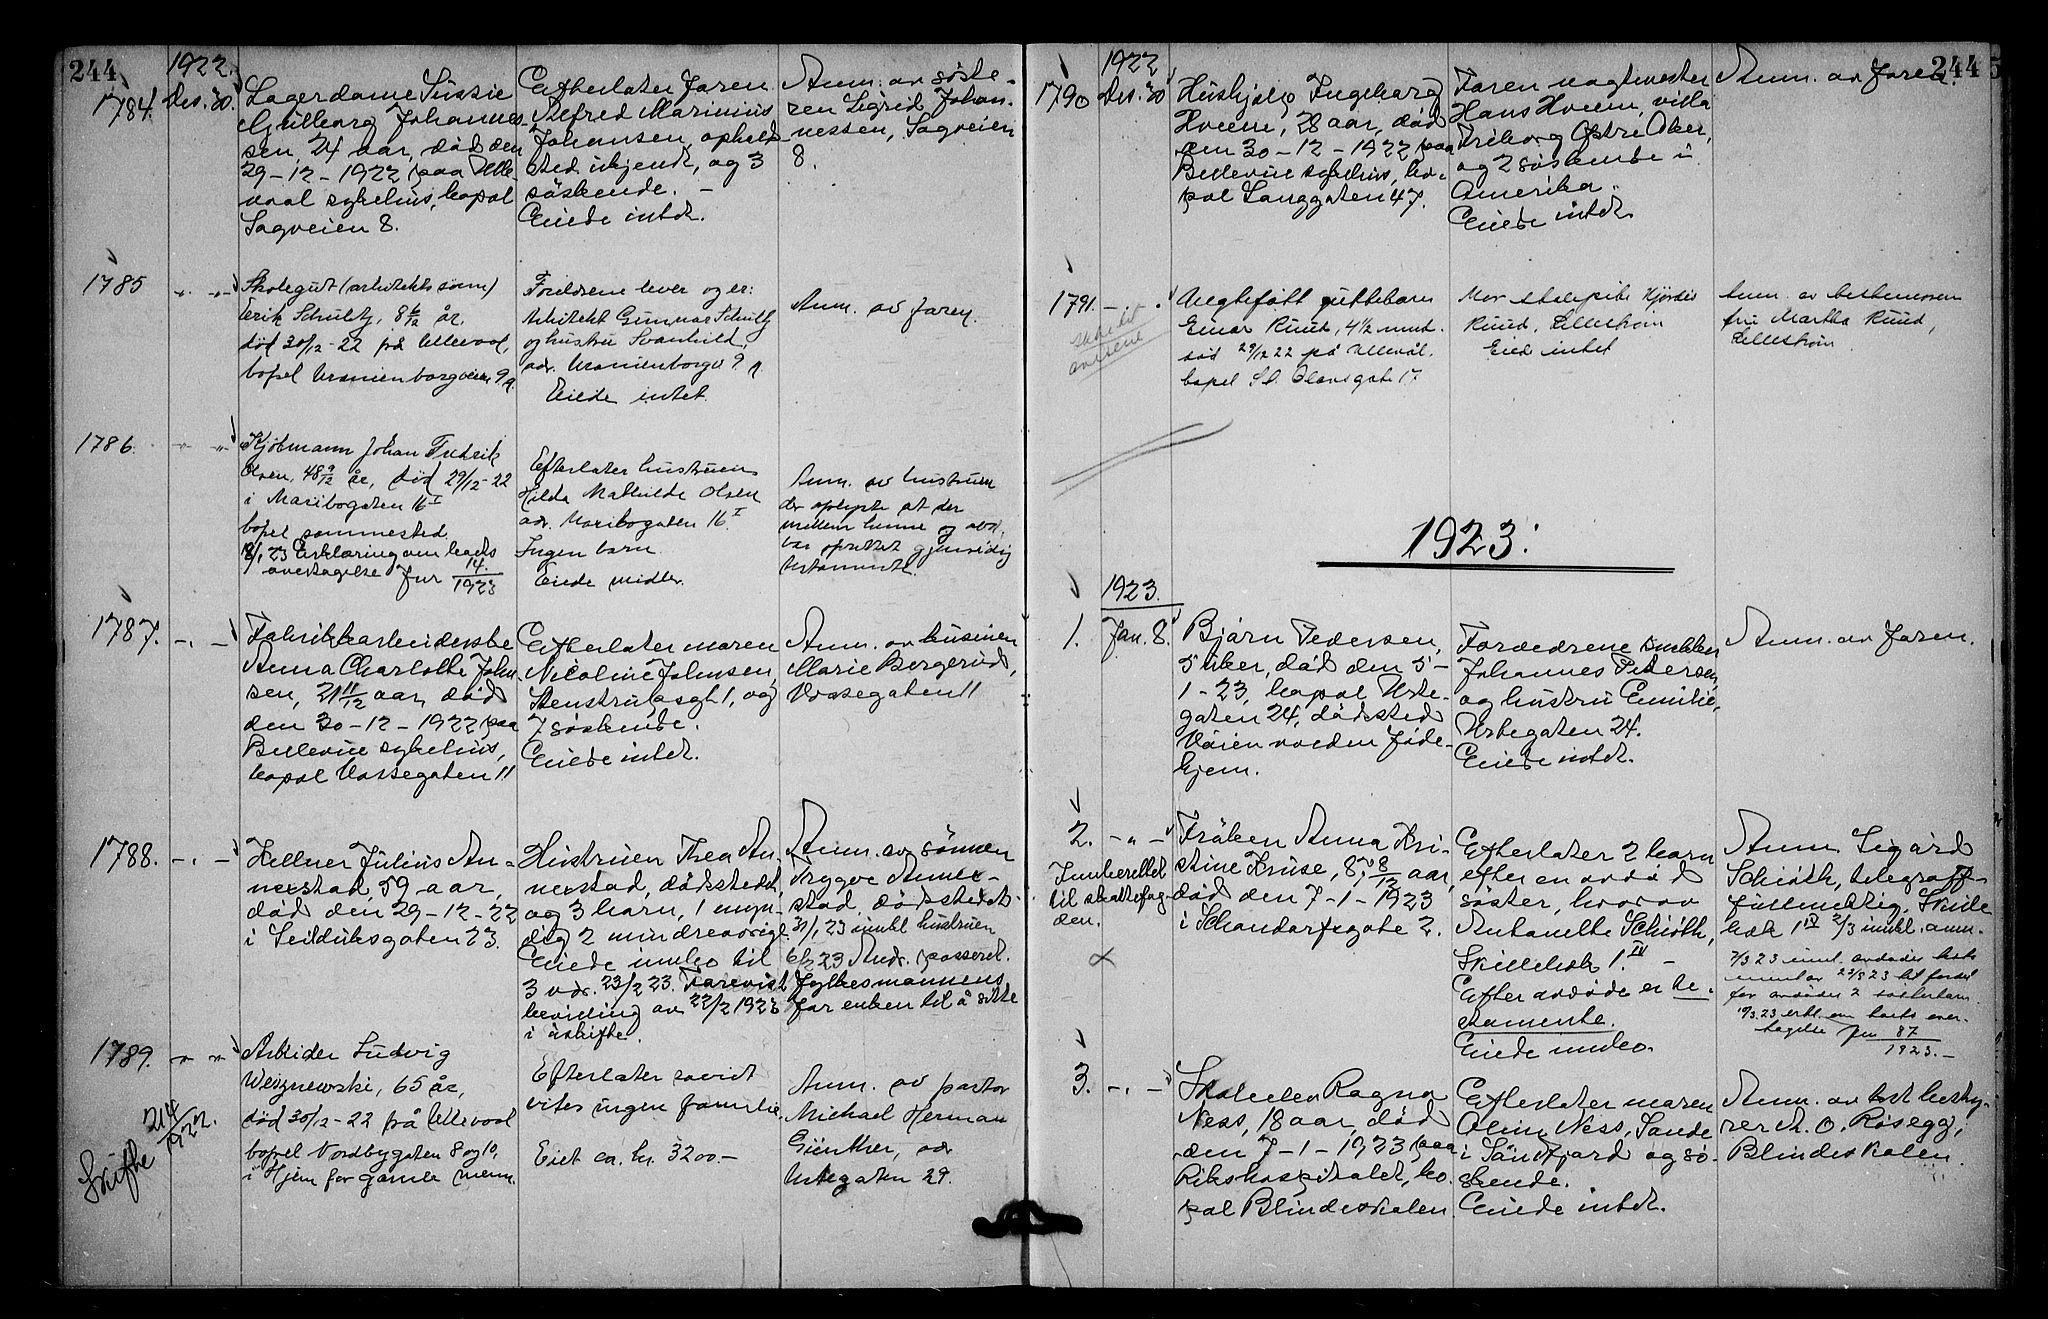 244
1922.
1784. Des. 30.
Lagerdame Sussie
Gullborg Johannes-
sen, 24 aar, död den
29-12-1922 paa Ulle-
vaal sykehus, bopæl
Sagveien 8.
Efterlater faren
Alfred Marinius
Johansen, ophold-
sted ukjendt, og 3
söskende. -
Eiede intet.
Anm. av söste-
ren Sigrid Johan-
nessen, Sagveien
8.
1785
Skolegut (arkitekts sönn)
Erik Schultz, 8 6/12 år,
död 30/12-22 på Ullevaal,
bopel Uranienborgveien 9
Foreldrene lever og er:
Arkitekt Gunnar Schultz
og hustru Svanhild,
adr. Uranienborgv 9
Eiede intet.
Anm. av faren.
1786.
Kjöbmann Johan Fredrik
Olsen, 48 9/12 år, död 29/12-22
i Maribogaten 16 I
bopel sammested.
18/1 23 Erklæring om boets
overtagelse Jnr 14/1923
Efterlater hustruen
Hilda Mathilde Olsen
adr. Maribogaten 16 I
Ingen barn
Eiede midler.
Anm. av hustruen
der oplyste at der
mellem henne og avd.
var oprettet gjensidig
testamente.
1787. -.-
Fabrikkarbeiderske
Anna Charlotte John-
sen, 21 11/12 aar, död
den 30-12-1922 paa
Bellevue sykehus,
bopæl Vossegaten 11
Efterlater moren
Nicoline Johnsen,
Stenstrupsgt 1, og
7 söskende.
Eiede intet.
Anm. av kusinen
Marie Borgerud,
Vossegaten 11
1788. -.-
Kellner Julius An-
nerstad, 59 aar,
död den 29-12-22
i Seilduksgaten 23.
Hustruen Thea An-
nerstad, dödstedet,
og 3 barn, 1 myn-
dig 2 mindreaarige.
Eiede nubo til
3 vdr. 23/2 23. Forevist Fylkesmannens
bevilling av 22/2 1923 for enken til å sitte
i uskifte.
Anm. av sönnen
Trygve Anner-
stad, dödstedet.
31/1 23 innkl hustruen
6/2 23 Andr. passeret.
1789.
Skifte 214/1922.
Arbeider Ludvig
Weiznewski, 65 år,
död 30/12-22 på Ullevaal
bopel Nordbygaten 8 og 10,
i Hjem for gamle menn.
Efterlater savidt
vites ingen familie.
Eiet ca. kr. 3200.-
Anm. av pastor
Michael Herman
Günther, adr
Urtegaten 29.
244
1922
1790 Des. 30
Hushjelp Ingeborg
Hveem, 28 aar, död
den 30-12-1922 paa
Bellevue sykehus, bo-
pæl Langgaten 47.
Faren vagtmester
Hans Hveem, villa
Friborg Östre Aker,
og 2 söskende i
Amerika.
Eiede intet.
Anm. av faren.
1791. -.-
Uegtefött guttebarn
Einar Ruud, 4 1/2 mnd.
död 29/12 22 på Ullevål.
bopel St. Olavsgate 17
Mor stuepike Hjördis
Ruud, Lilleström
Eied intet
Anm. av bestemoren
fru Martha Ruud,
Lilleström
1923.
1923.
1. Jan. 8.
Björn Pedersen,
5 uker, död den 5-
1-23, bopæl Urte-
gaten 24, dödsted
Vöienvolden föde-
hjem.
Foreldrene snekker
Johannes Pedersen,
og hustru Emilie,
Urtegaten 24.
Eiede intet.
Anm. av faren.
2. -"-
Innberettet
til skattefog-
den.
Fröken Anna Kri-
stine Kruse, 87 8/12 aar,
död den 7-1-1923
i Schandorfsgate 2.
Efterlater 2 barn
efter en avdöd
söster, hvorav
Antonette Schiöth,
Skillebek 1. IV -
Efter avdöde er te-
stamente.
Eiede nubo.
Anm. Sigurd
Schiöth, telegraf-
fullmektig, Skille
bek 1 IV 2/3 innkl. anm.
7/3 23 innl. avdödes testa
for avdödes 2 sösterbarn.
10/3 23 erkl. om boets over-
tagelse Jnr 87
1923.-
3. -.-
Skoleelev Ragna
Ness, 18 aar, död
den 7-1-1923 paa
Rikshospitalet, bo-
pæl Blindeskolen
Efterlater moren
Oline Ness, Sande
i Söndfjord og sö-
skende.
Eiede intet.
Anm. av best besty-
rer M. O. Rösegg,
Blindeskolen.